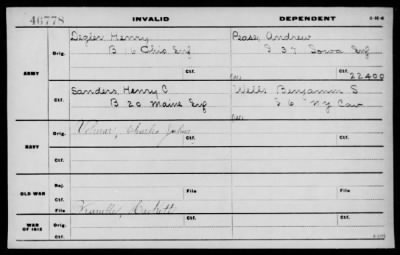 46778
INVALID
DEPENDENT
Degler Henry
Pease, Andrew
B 6 Ohio Inf
I 37 Iowa Inf
Orig.
ARMY
Ctf.
Ctf. 22400
Sanders, Henry C
Wells Benjamin S
B 20 Maine Inf
I 6 NY Cav
Orig.
Ctf.
Ctf.
Charles John
Orig.
NAVY
Ctf.
Ctf.
Rej.
OLD WAR
File
File
WAR OF 1812
Orig.
Ctf.
Ctf.